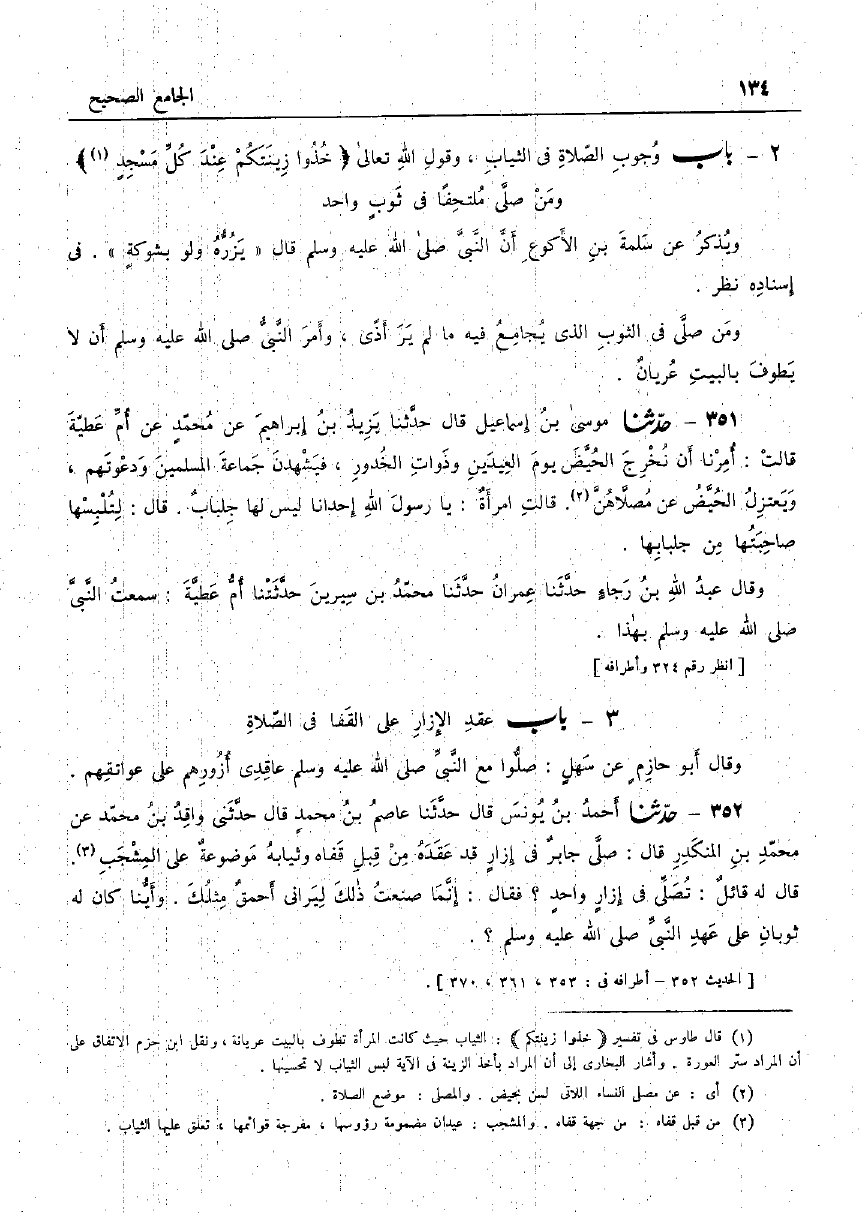 ١٣٤
الجامع الصحيح
٢ - باب وُجوبِ الصّلاةِ فى الثيابِ ، وقولِ اللهِ تعالىٰ ﴿ خُذُوا زِينَتَكُمْ عِنْدَ كُلِّ مَسْجِدٍ (١) ﴾
ومَنْ صلَّى مُلتحِفًا فى ثَوبٍ واحد
ويُذكرُ عن سَلمةَ بنِ الأكوعِ أنَّ النَّبىَّ صلىٰ الله عليه وسلم قال « يَزُرُّهُ ولو بشوكةٍ » . فى
إسنادِه نظر .
ومَن صلَّى فى الثوبِ الذى يُجامِعُ فيه ما لم يَرَ أذًى ، وأمرَ النَّبىُّ صلى الله عليه وسلم أن لا
يَطوفَ بالبيتِ عُريانٌ .
٣٥١ - حدّثنا موسىٰ بنُ إسماعيل قال حدَّثنا يَزيدُ بنُ إبراهيمَ عن مُحمّدٍ عن أُمِّ عَطيّةَ
قالتْ : أُمِرْنا أن نُخْرِجَ الحُيَّضَ يومَ العِيدَينِ وذَواتِ الخُدورِ ، فيَشْهدنَ جَماعةَ المسلمينَ وَدعْوتَهم ،
وَيَعتزِلُ الحُيَّضُ عن مُصلَّاهُنَّ (٢). قالتِ امرأةٌ : يا رسولَ اللهِ إحدانا ليس لها جِلبابٌ . قال : لِتُلْبِسْها
صاحِبَتُها مِن جلبابِها .
وقال عبدُ اللهِ بنُ رَجاءٍ حدَّثَنا عِمرانُ حدَّثَنا محمّدُ بن سِيرينَ حدَّثَتْنا أُمُّ عَطيَّةَ : سمعتُ النَّبىَّ
صلى الله عليه وسلم بهٰذا .
[ انظر رقم ٣٢٤ وأطرافه ]
٣ - باب عقدِ الإزارِ على القَفا فى الصّلاةِ
وقال أبو حازِمٍ عن سَهلٍ : صلُّوا مع النَّبىِّ صلى الله عليه وسلم عاقِدِى أُزُورِهم على عواتقِهم .
٣٥٢ - حدّثنا أحمدُ بنُ يُونسَ قال حدَّثَنا عاصمُ بنُ محمدٍ قال حدَّثَنى واقِدُ بنُ محمّد عن
محمّدِ بنِ المنكَدِرِ قال : صلَّى جابرٌ فى إزارٍ قد عَقَدَهُ مِنْ قِبلِ قَفاه وثيابهُ مَوضوعةٌ على المِشْجَبِ (٣).
قال له قائلٌ : تُصَلِّى فى إزارٍ واحدٍ ؟ فقال : إنَّمَا صنعتُ ذٰلكَ لِيَرانى أحمقٌ مِثلُكَ . وأيُّنا كان له
ثوبانِ على عَهدِ النَّبىِّ صلى الله عليه وسلم ؟ .
[ الحديث ٣٥٢ - أطرافه فى : ٣٥٣ ، ٣٦١ ، ٣٧٠ ] .
(١) قال طاوس فى تفسير ﴿ خذوا زينتكم ﴾ : الثياب حيث كانت المرأة تطوف بالبيت عريانة ، ونقل ابن حزم الاتفاق على
أن المراد ستر العورة . وأشار البخارى إلى أن المراد بأخذ الزينة فى الآية لبس الثياب لا تحسينها .
(٢) أى : عن مصلى النساء اللاتى لسن بحيض . والمصلى : موضع الصلاة .
(٣) من قبل قفاه : من جهة قفاه . والمشجب : عيدان مضمومة رؤوسها ، مفرجة قوائمها ، تعلق عليها الثياب .